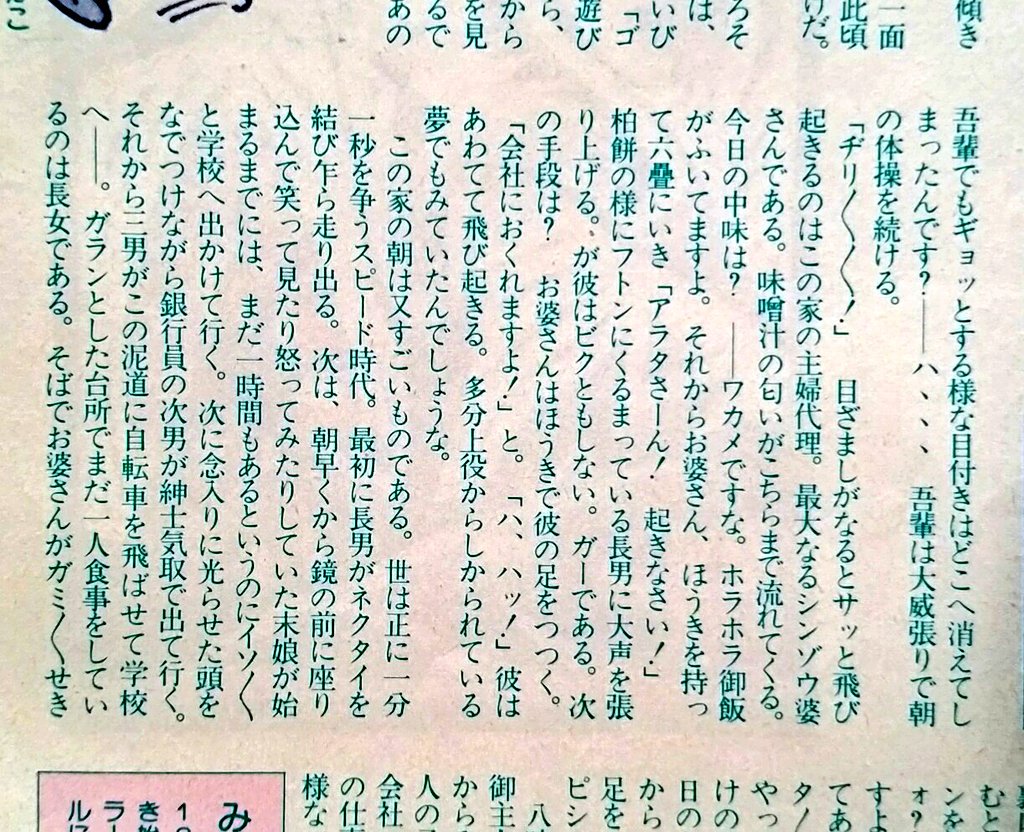 傾き
一面
此頃
けだ。
ろそ
は、
いび
「ゴ
遊び
ら、
から
を見
るで
あの
吾輩でもギョッとする様な目付きはどこへ消えてし
まったんです？――ハ、、、　吾輩は大威張りで朝
の体操を続ける。
「ヂリ〱〱！」　目ざましがなるとサッと飛び
起きるのはこの家の主婦代理。最大なるシンゾウ婆
さんである。味噌汁の匂いがこちらまで流れてくる。
今日の中味は？　――ワカメですな。ホラホラ御飯
がふいてますよ。それからお婆さん、ほうきを持っ
て六疊にいき「アラタさーん！　起きなさい！」
柏餅の様にフトンにくるまっている長男に大声を張
り上げる。が彼はビクともしない。ガーである。次
の手段は？　お婆さんはほうきで彼の足をつつく。
「会社におくれますよ！」と。「ハ、ハッ！」彼は
あわてて飛び起きる。多分上役からしかられている
夢でもみていたんでしょうな。
この家の朝は又すごいものである。世は正に一分
一秒を争うスピード時代。最初に長男がネクタイを
結び乍ら走り出る。次は、朝早くから鏡の前に座り
込んで笑って見たり怒ってみたりしていた末娘が始
まるまでには、まだ一時間もあるというのにイソ〱
と学校へ出かけて行く。次に念入りに光らせた頭を
なでつけながら銀行員の次男が紳士気取で出て行く。
それから三男がこの泥道に自転車を飛ばせて学校
へ――。ガランとした台所でまだ一人食事をしてい
るのは長女である。そばでお婆さんがガミ〱せき
むと
ンを
ォ？
すよ
てあ
やっ
けの
日の
から
足を
ピシ
八
御主
から
人の
会社
の仕
様な
み
き始
ラー
ルに